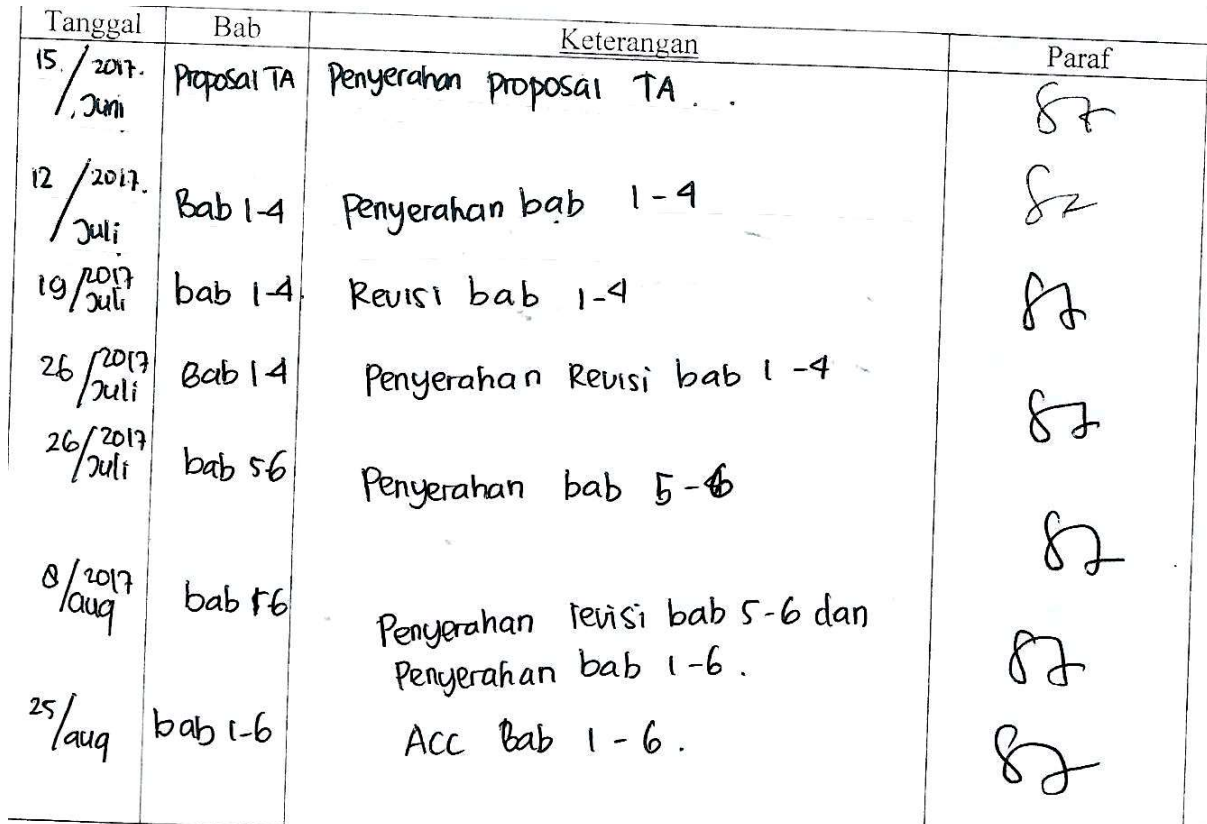 Tanggal Bab Keterangan Paraf
15./2017. Juni Proposal TA Penyerahan proposal TA . .
12/2017. Juli Bab 1-4 Penyerahan bab 1-4
19/2017 Juli bab 1-4 Revisi bab 1-4
26/2017 Juli Bab 1-4 Penyerahan Revisi bab 1-4
26/2017 Juli bab 5-6 Penyerahan bab 5-6
8/2017 aug bab 5-6 Penyerahan revisi bab 5-6 dan
Penyerahan bab 1-6.
25/aug bab 1-6 Acc Bab 1-6.